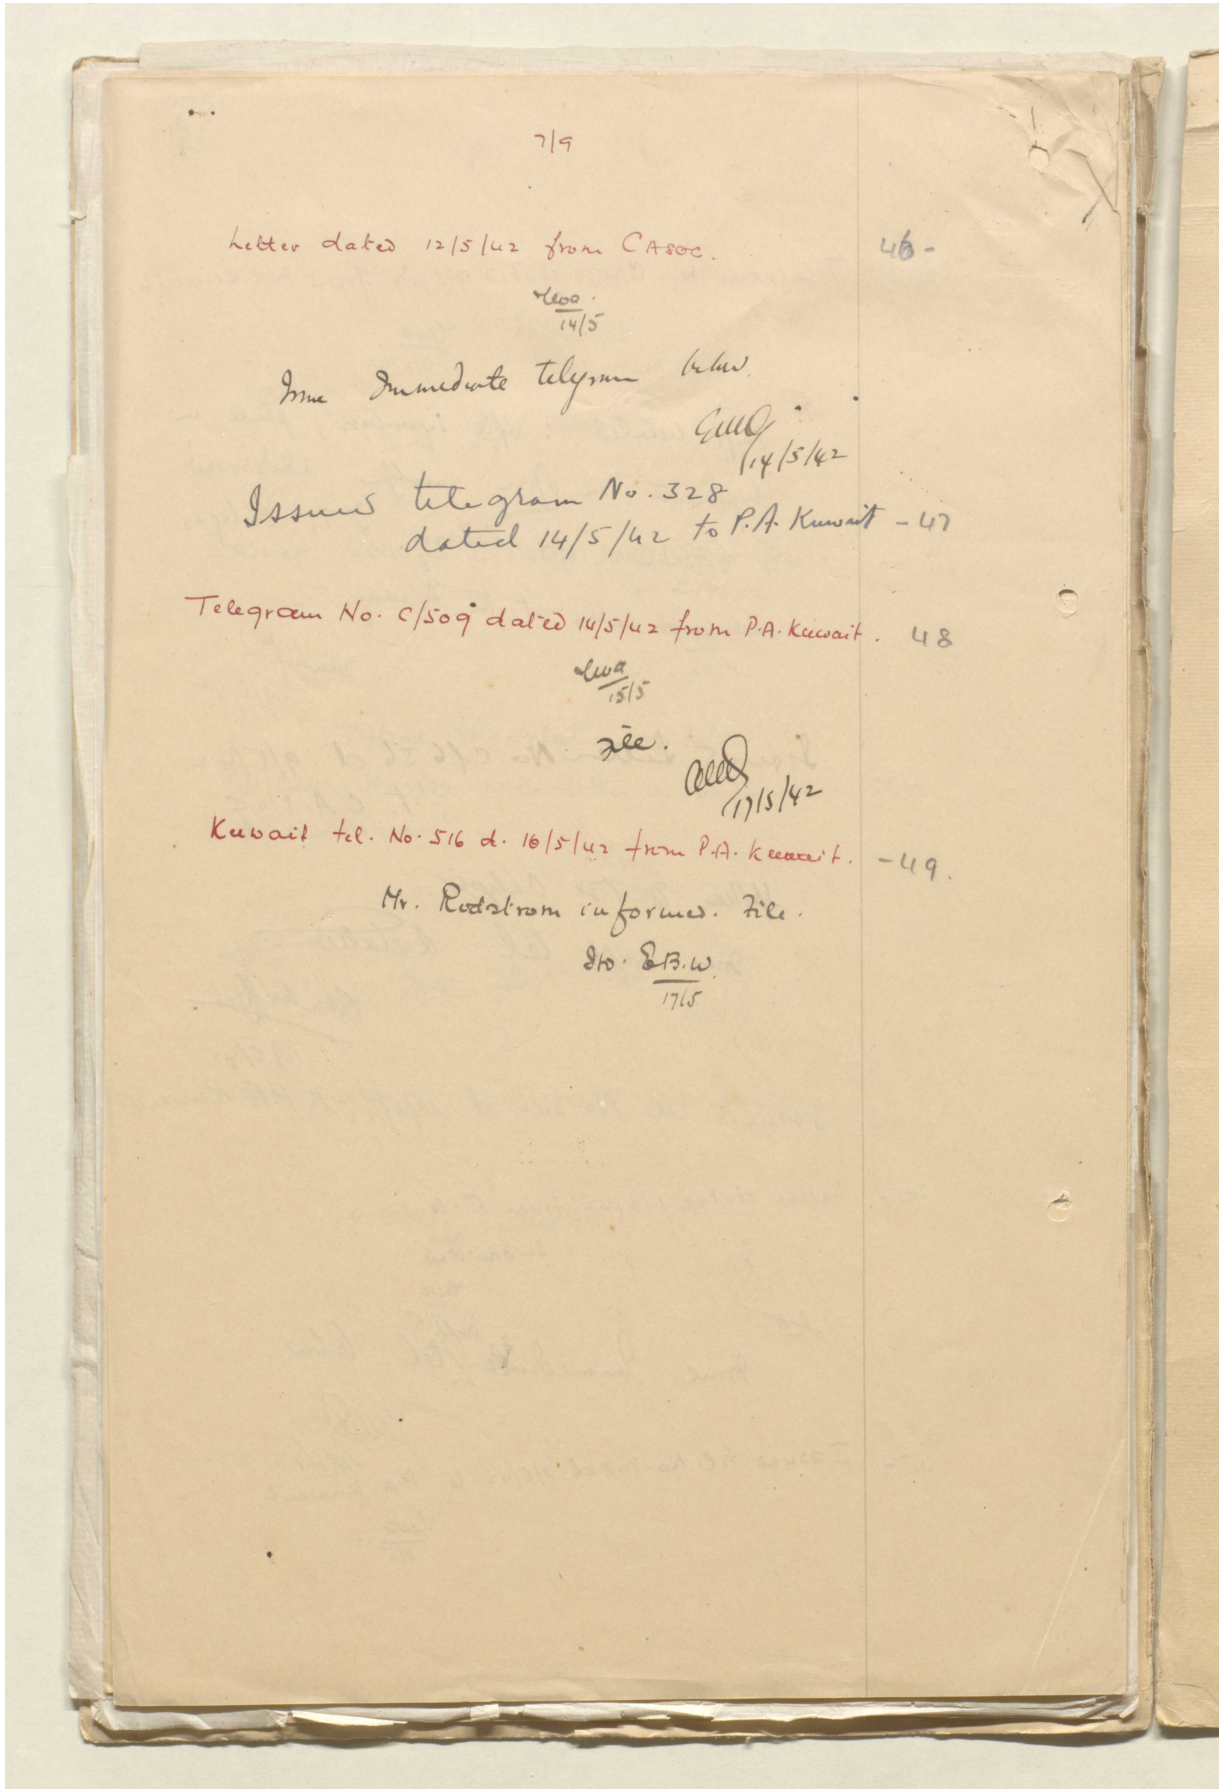 7/9
Letter dated 12/5/42 from CASOC. 46-
14/5
Issue Immediate telegram below.
14/5/42
Issued telegram No. 328
dated 14/5/42 to P.A. Kuwait -47
Telegram No. C/509 dated 14/5/42 from P.A. Kuwait. 48
15/5
File.
17/5/42
Kuwait tel. No. 516 d. 16/5/42 from P.A. Kuwait. -49.
Mr. Rodstrom informed. File.
E.B.W.
17/5